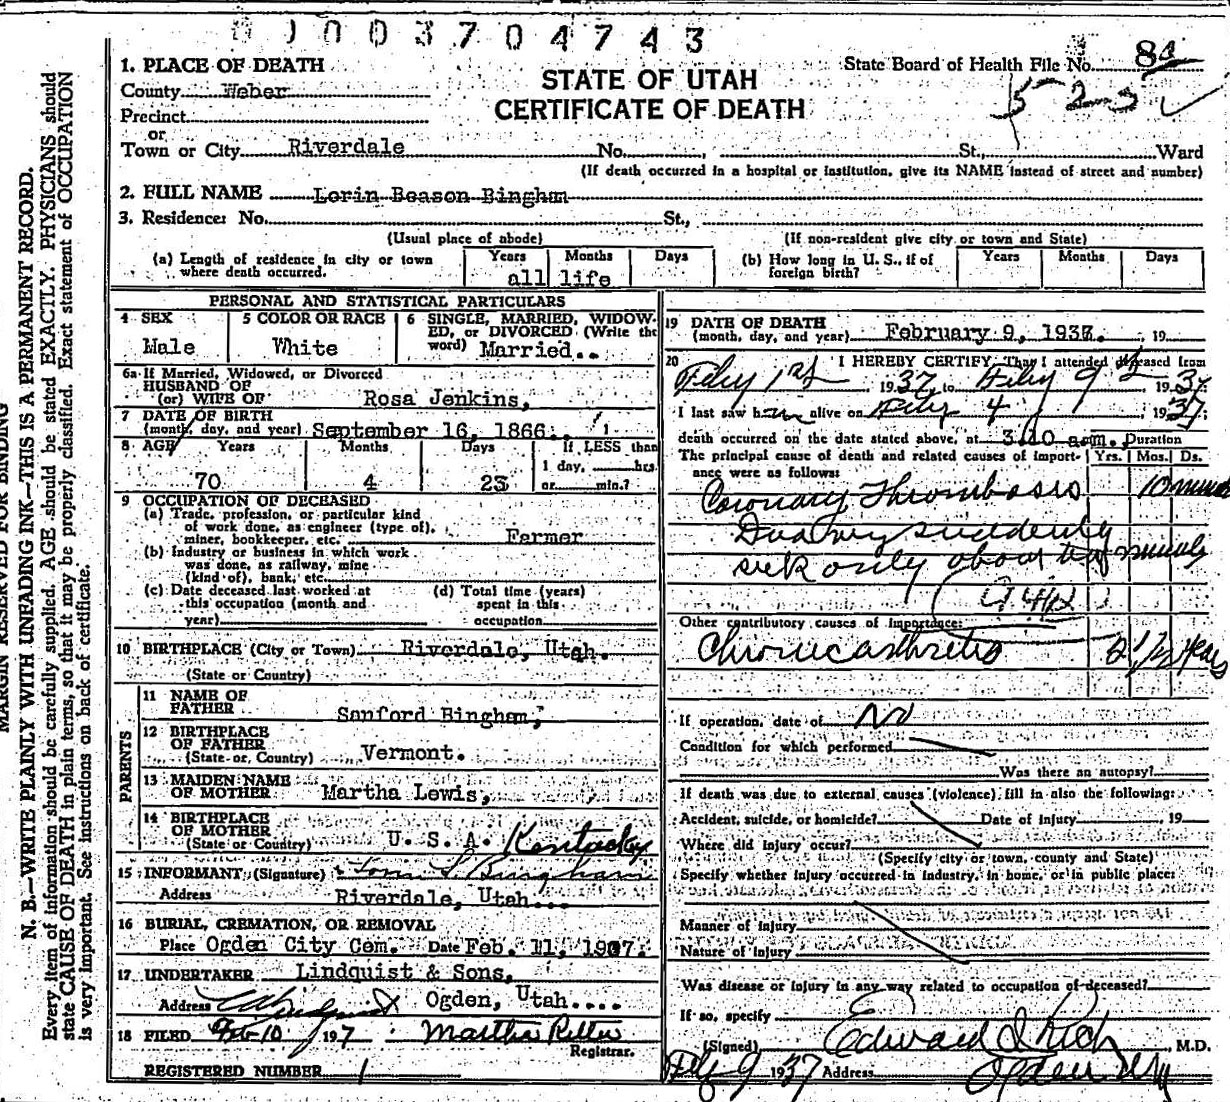 003704743
State Board of Health File No. 84
STATE OF UTAH
CERTIFICATE OF DEATH
5-2-3
1. PLACE OF DEATH
County Weber
Precinct
or
Town or City Riverdale No. , St., Ward
(If death occurred in a hospital or institution, give its NAME instead of street and number)
2. FULL NAME Lorin Beason Binghm
3. Residence: No. St.,
(Usual place of abode) (If non-resident give city or town and State)
(a) Length of residence in city or town where death occurred. Years Months Days all life
(b) How long in U. S., if of foreign birth? Years Months Days
PERSONAL AND STATISTICAL PARTICULARS
4 SEX Male
5 COLOR OR RACE White
6 SINGLE, MARRIED, WIDOWED, or DIVORCED (Write the word) Married..
6a If Married, Widowed, or Divorced
HUSBAND OF
(or) WIFE OF Rosa Jenkins,
7 DATE OF BIRTH
(month, day, and year) September 16, 1866.
8 AGE Years Months Days If LESS than
1 day, hrs.
70 4 23 or min.?
9 OCCUPATION OF DECEASED
(a) Trade, profession, or particular kind
of work done, as engineer (type of),
miner, bookkeeper, etc. Farmer
(b) Industry or business in which work
was done, as railway, mine
(kind of), bank, etc.
(c) Date deceased last worked at
this occupation (month and
year)
(d) Total time (years)
spent in this
occupation
10 BIRTHPLACE (City or Town) Riverdale, Utah.
(State or Country)
PARENTS
11 NAME OF
FATHER Sanford Bingham,
12 BIRTHPLACE
OF FATHER
(State or Country) Vermont.
13 MAIDEN NAME
OF MOTHER Martha Lewis,
14 BIRTHPLACE
OF MOTHER
(State or Country) U. S. A. Kentucky
15 INFORMANT (Signature) Bingham
Address Riverdale, Utah...
16 BURIAL, CREMATION, OR REMOVAL
Place Ogden City Cem. Date Feb. 11, 1937.
17 UNDERTAKER Lindquist & Sons,
Address Ogden, Utah....
18 FILED Feb 10 1937 Martha
Registrar.
REGISTERED NUMBER 1
19 DATE OF DEATH
(month, day, and year) February 9, 1937. , 19
20 I HEREBY CERTIFY, That I attended deceased from
Feby 1st 1937 to Feby 9th 1937
I last saw him alive on Feby 4 1937
death occurred on the date stated above, at 3:10 a.m. Duration
The principal cause of death and related causes of importance were as follows: Yrs. Mos. Ds.
Coronary Thrombosis 10 minutes
suddenly
sick only about minutes
Other contributory causes of importance:
Chronic arthritis 2 1/2 years
If operation, date of No
Condition for which performed
Was there an autopsy?
If death was due to external causes (violence) fill in also the following:
Accident, suicide, or homicide? Date of injury , 19
Where did injury occur?
(Specify city or town, county and State)
Specify whether injury occurred in industry, in home, or in public place:
Manner of injury
Nature of injury
Was disease or injury in any way related to occupation of deceased?
If so, specify
(Signed) Edward I Rich , M.D.
Feby 9 1937 Address Ogden
MARGIN RESERVED FOR BINDING
N. B.—WRITE PLAINLY WITH UNFADING INK—THIS IS A PERMANENT RECORD.
Every item of information should be carefully supplied. AGE should be stated EXACTLY. PHYSICIANS should
state CAUSE OF DEATH in plain terms, so that it may be properly classified. Exact statement of OCCUPATION
is very important. See instructions on back of certificate.